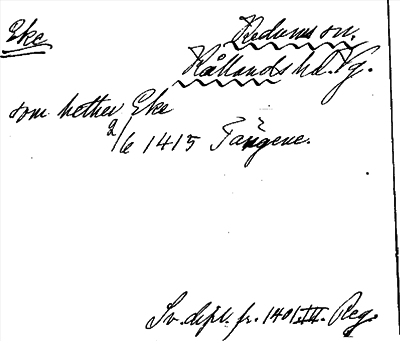 Eke
Redums sn.
Kållands hd. Vg.
som hether Eke
2/6 1415 Tängene.
Sv. dipl. fr. 1401 III. Reg.